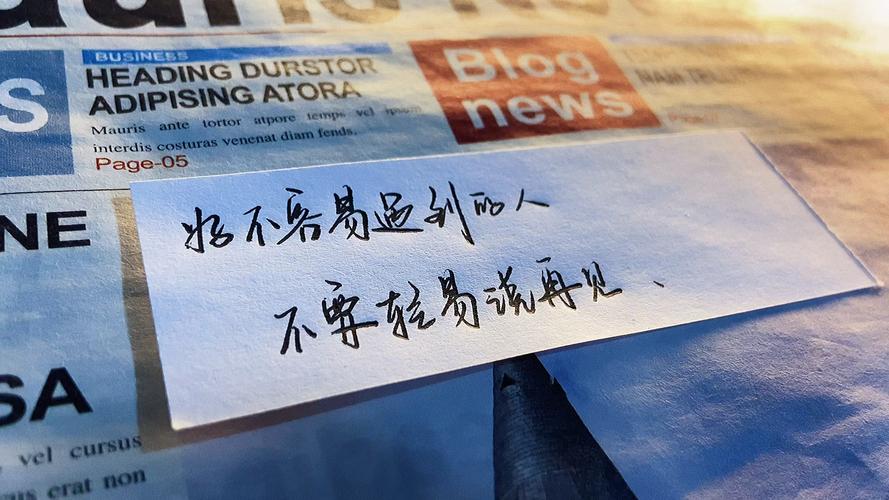 BUSINESS
HEADING DURSTOR
ADIPISING ATORA
Mauris ante tortor atpore temps vel ipsum
interdis costuras venenat diam fends.
Page-05
Blog
news
S
NE
SA
vel cursus
erat non
好不容易遇到的人
不要轻易说再见、